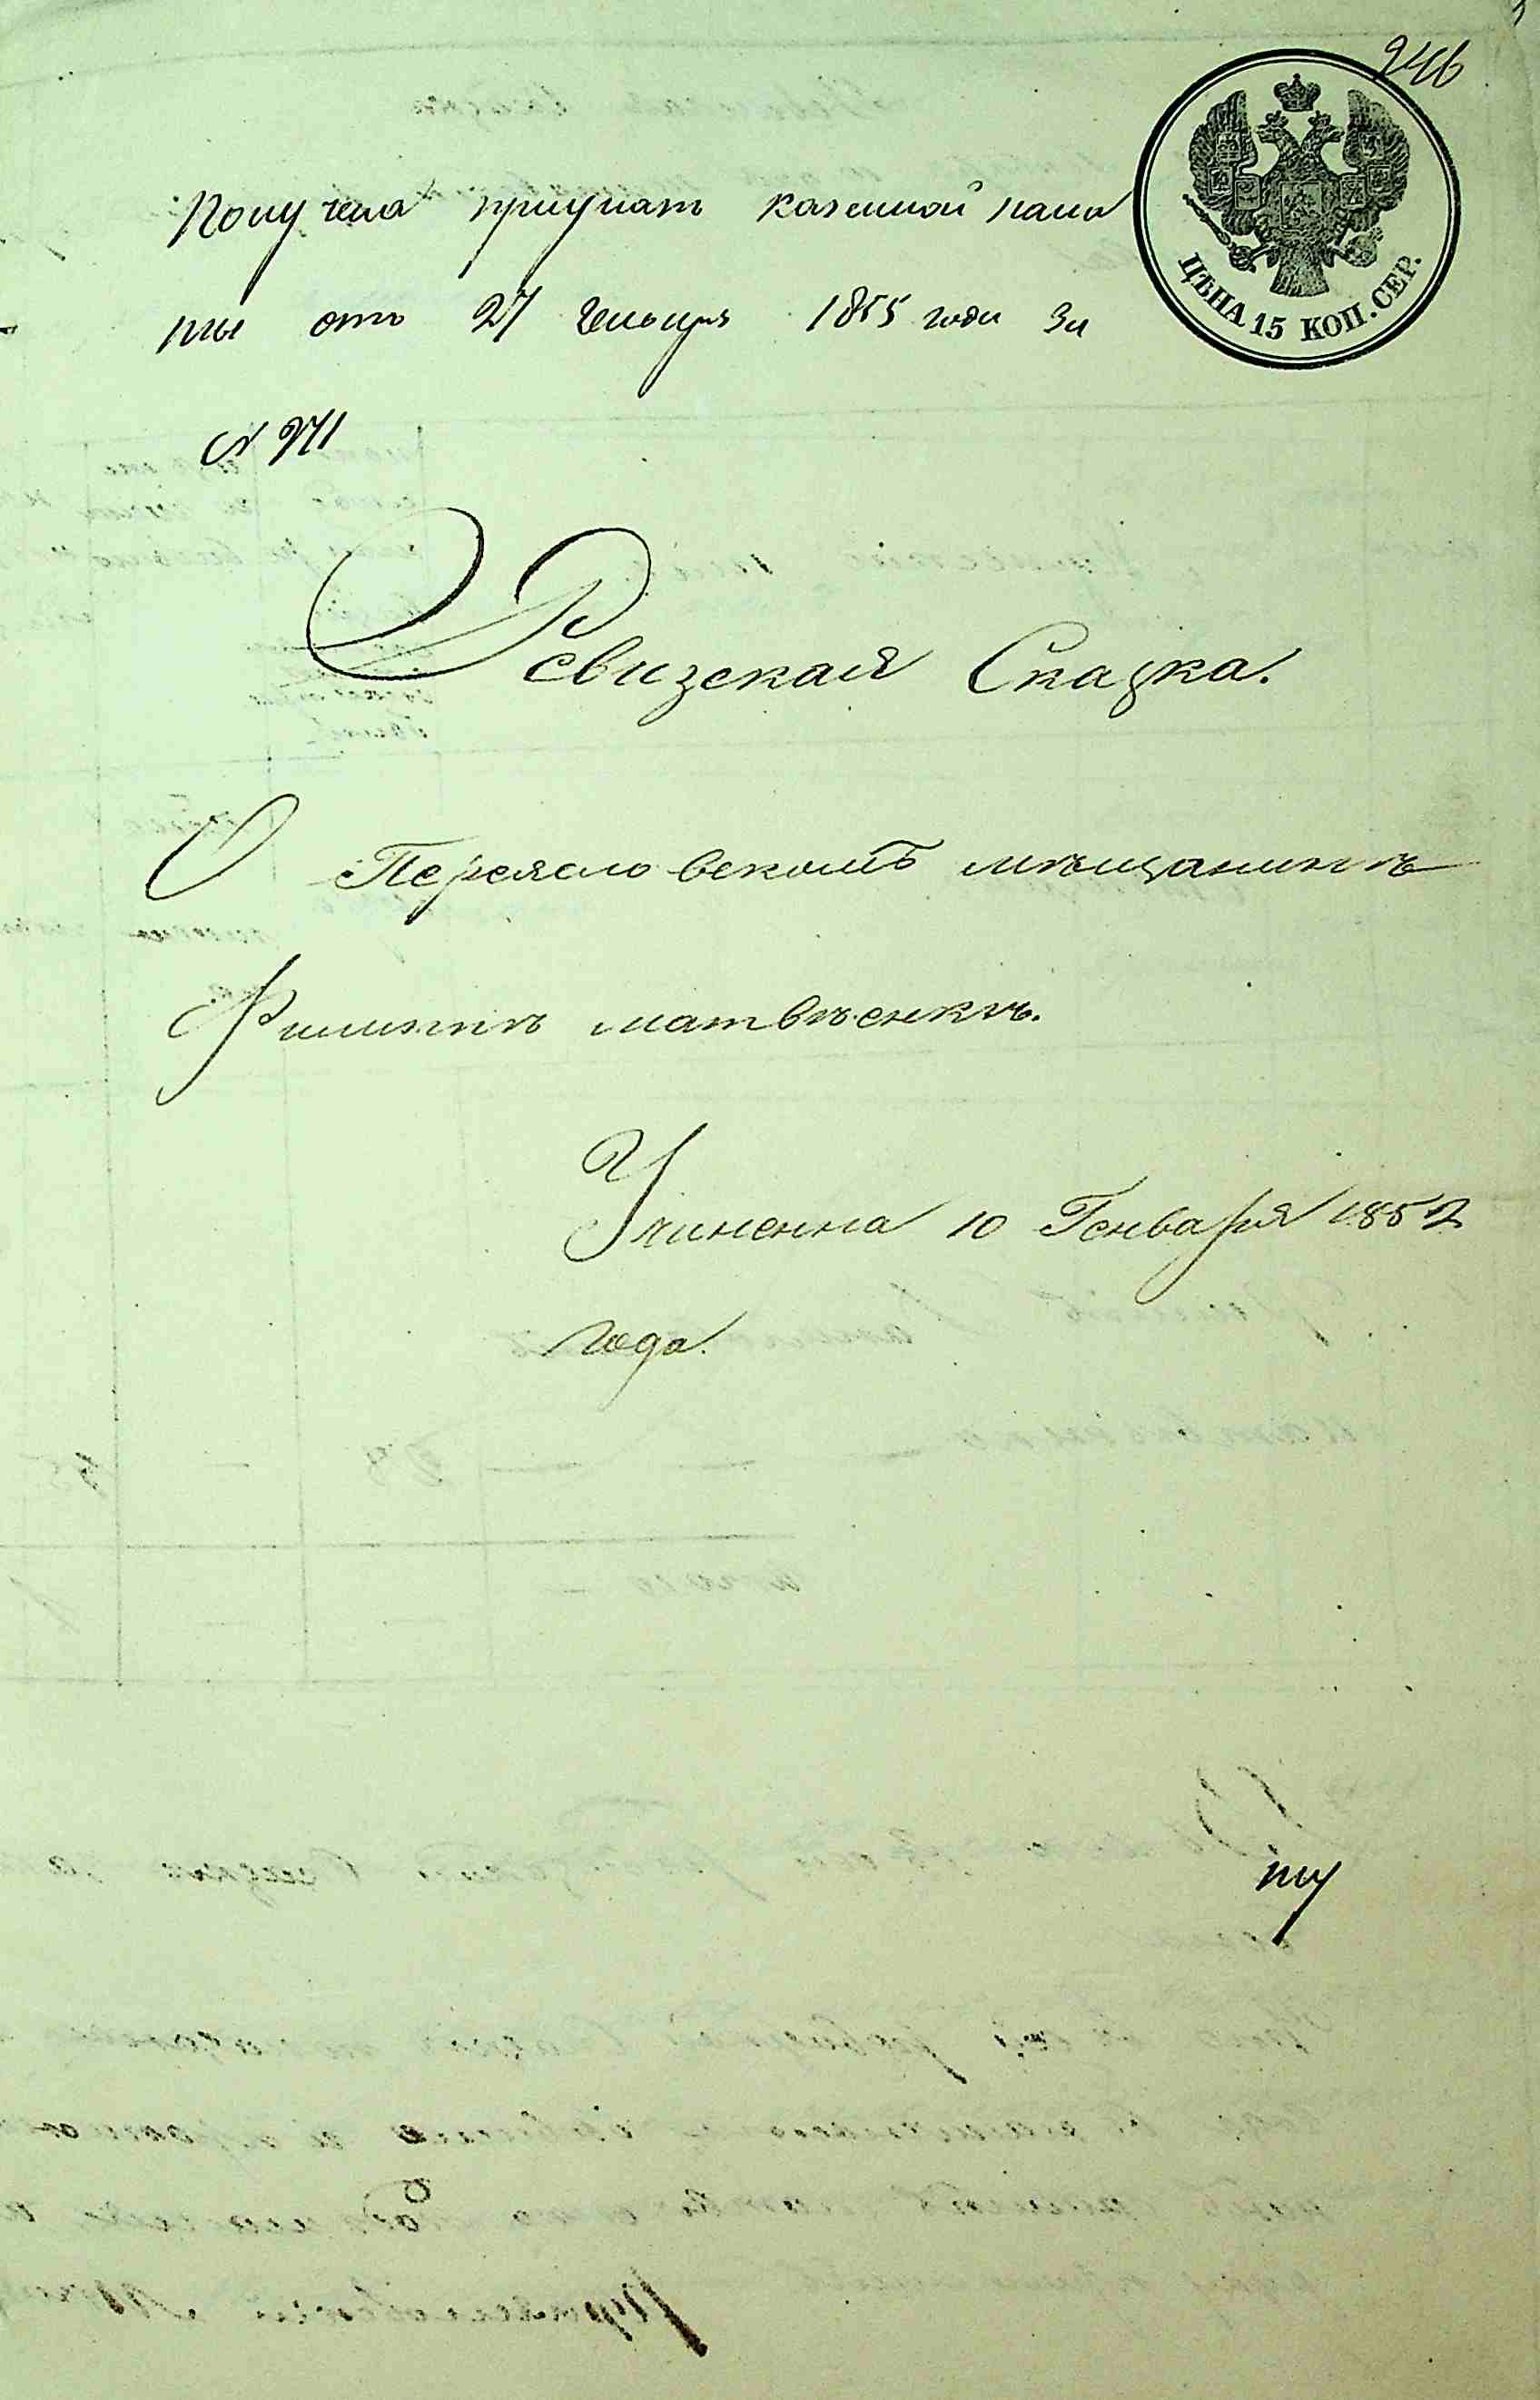 246
ЦѢНА 15 КОП. СЕР.
Получена при указѣ казенной пала
ты отъ 27 генваря 1855 года за
№ 271
Ревизская Сказка.
О Переяславскомъ мѣщанинѣ
Филипѣ матвѣенкѣ.
Учиненна 10 Генваря 1852
года.